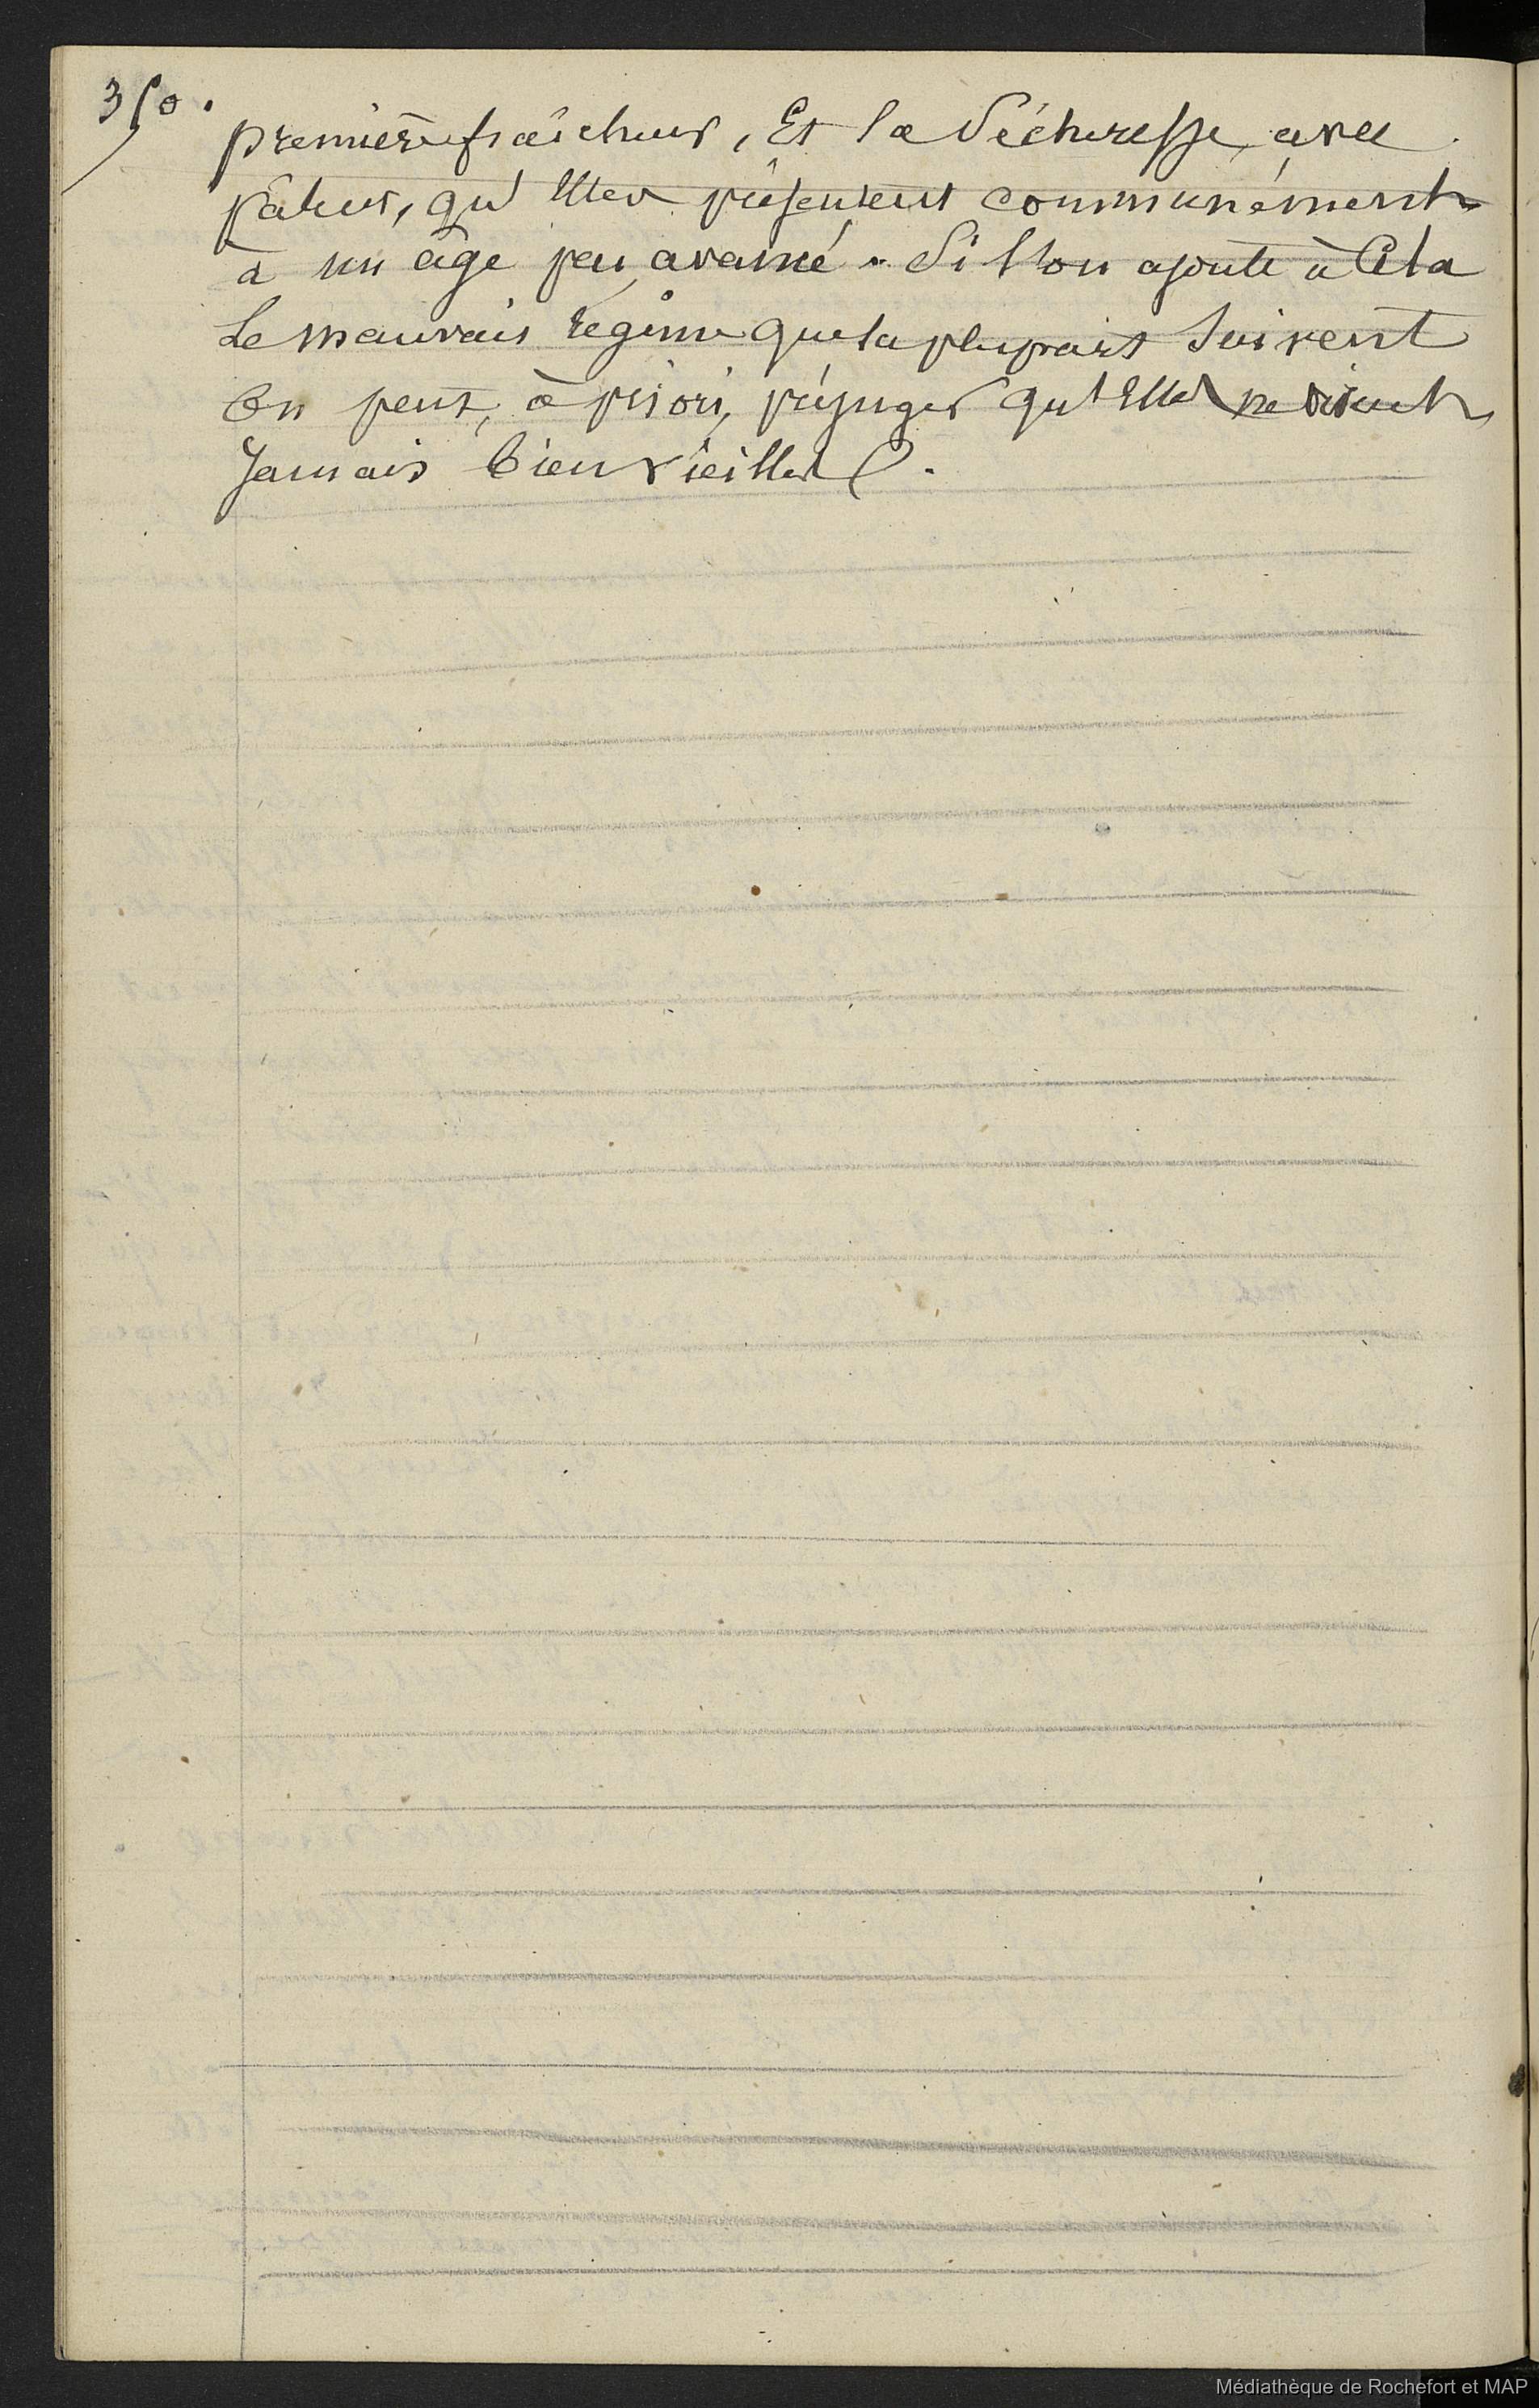 350.
première fraîcheur, Et la Sécheresse, avec
pâleur, qu'Elles présentent communément
à un âge peu avancé. Si l'on ajoute à Cela
Le mauvais régime que la plupart Suivent
On peut, à priori, préjuger qu'Elles ne vivent
Jamais bien vieilles.
Médiathèque de Rochefort et MAP